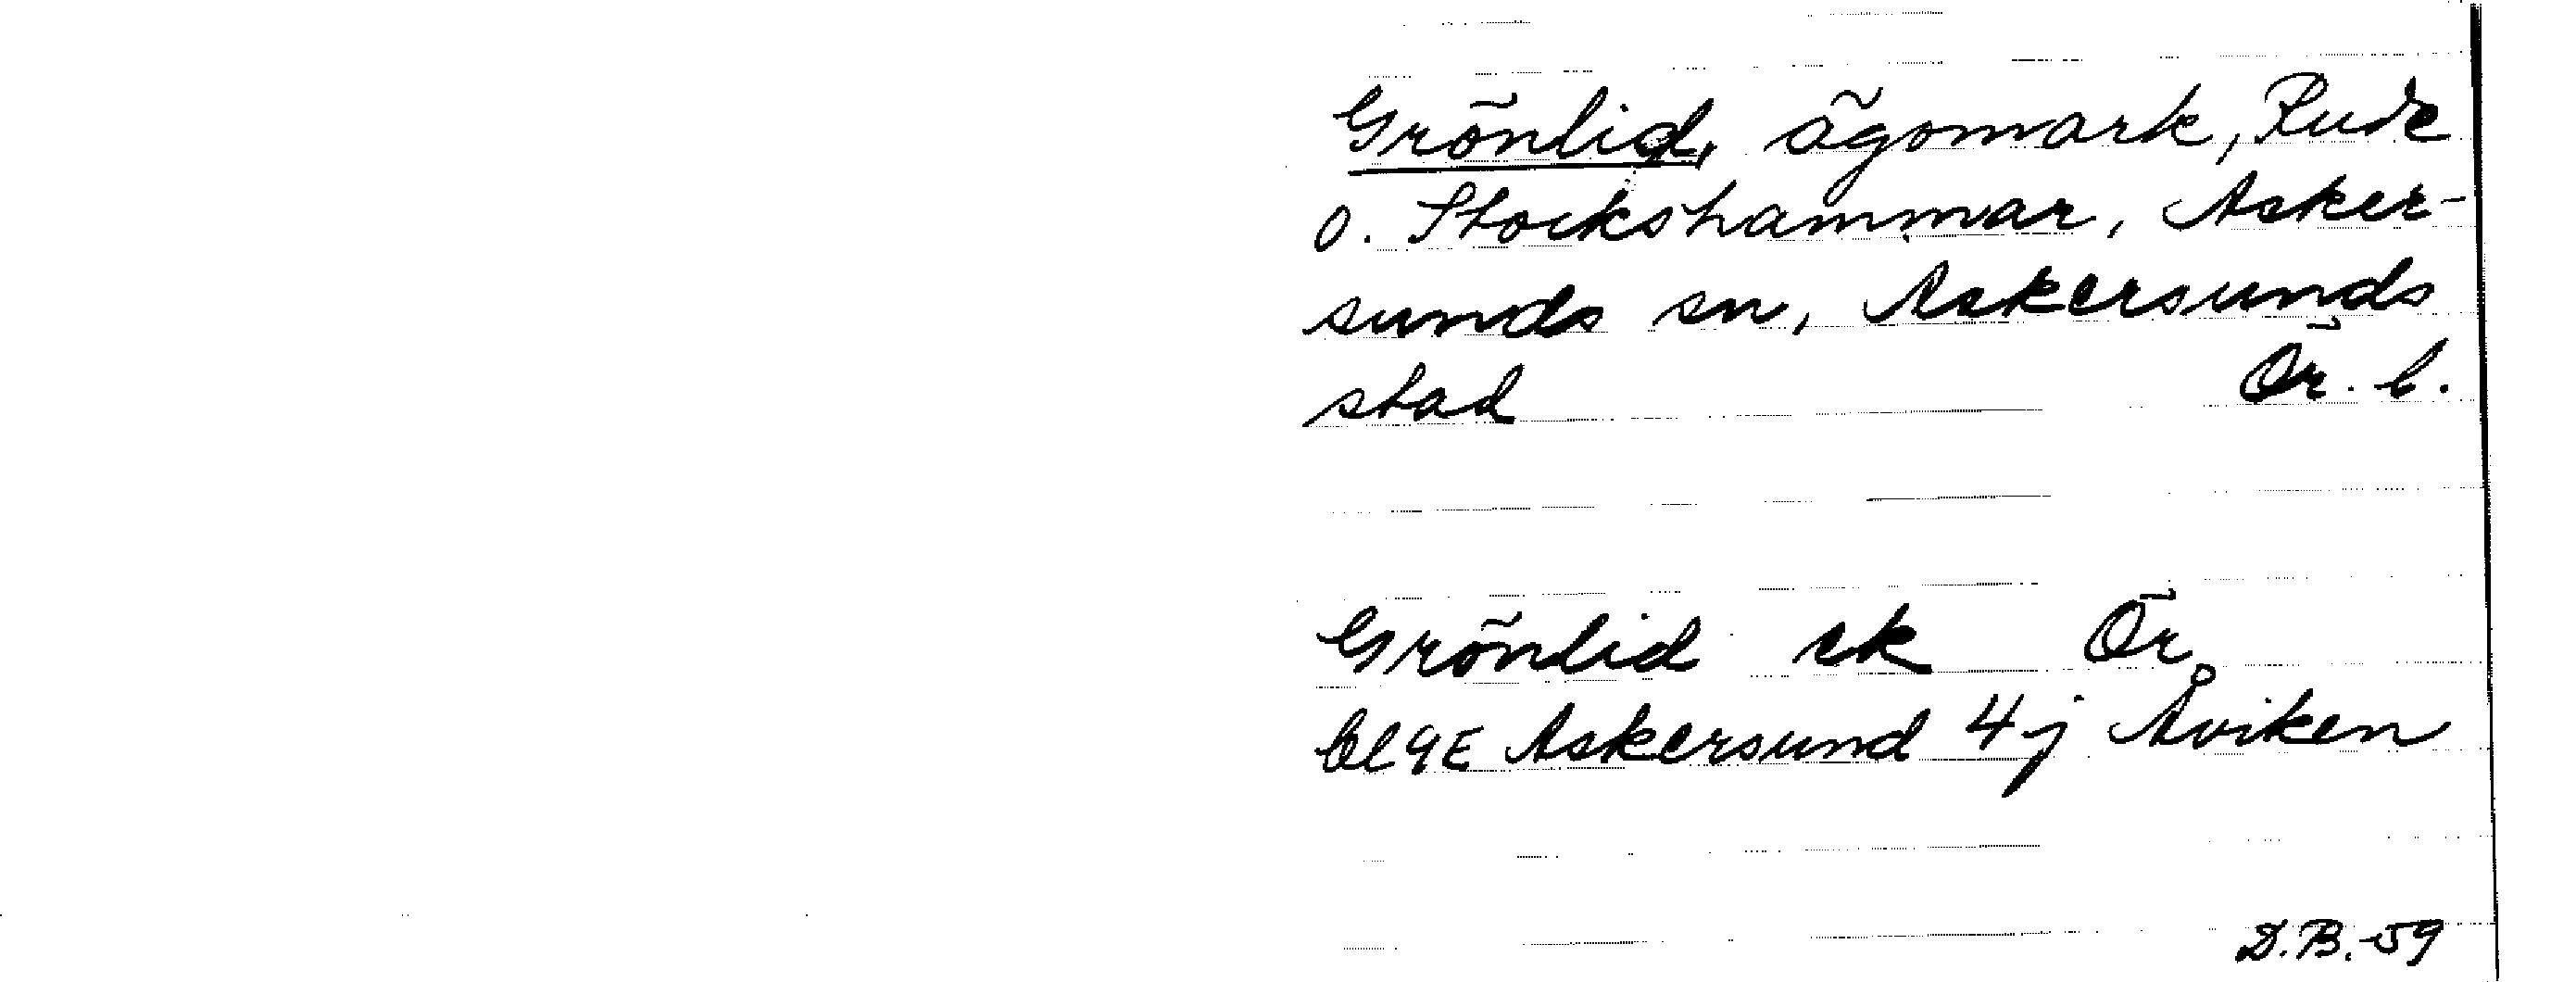 Grönlid, ägomark, Rude
o. Stockshammar, Asker-
sunds sn, Askersunds
stad Ör. l.
Grönlid ek Ör
bl 9E Askersund 4j Åviken
D.B.-59